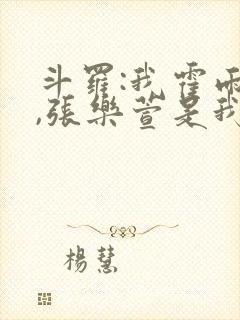 斗羅:我霍雨
,張樂萱是我
楊慧